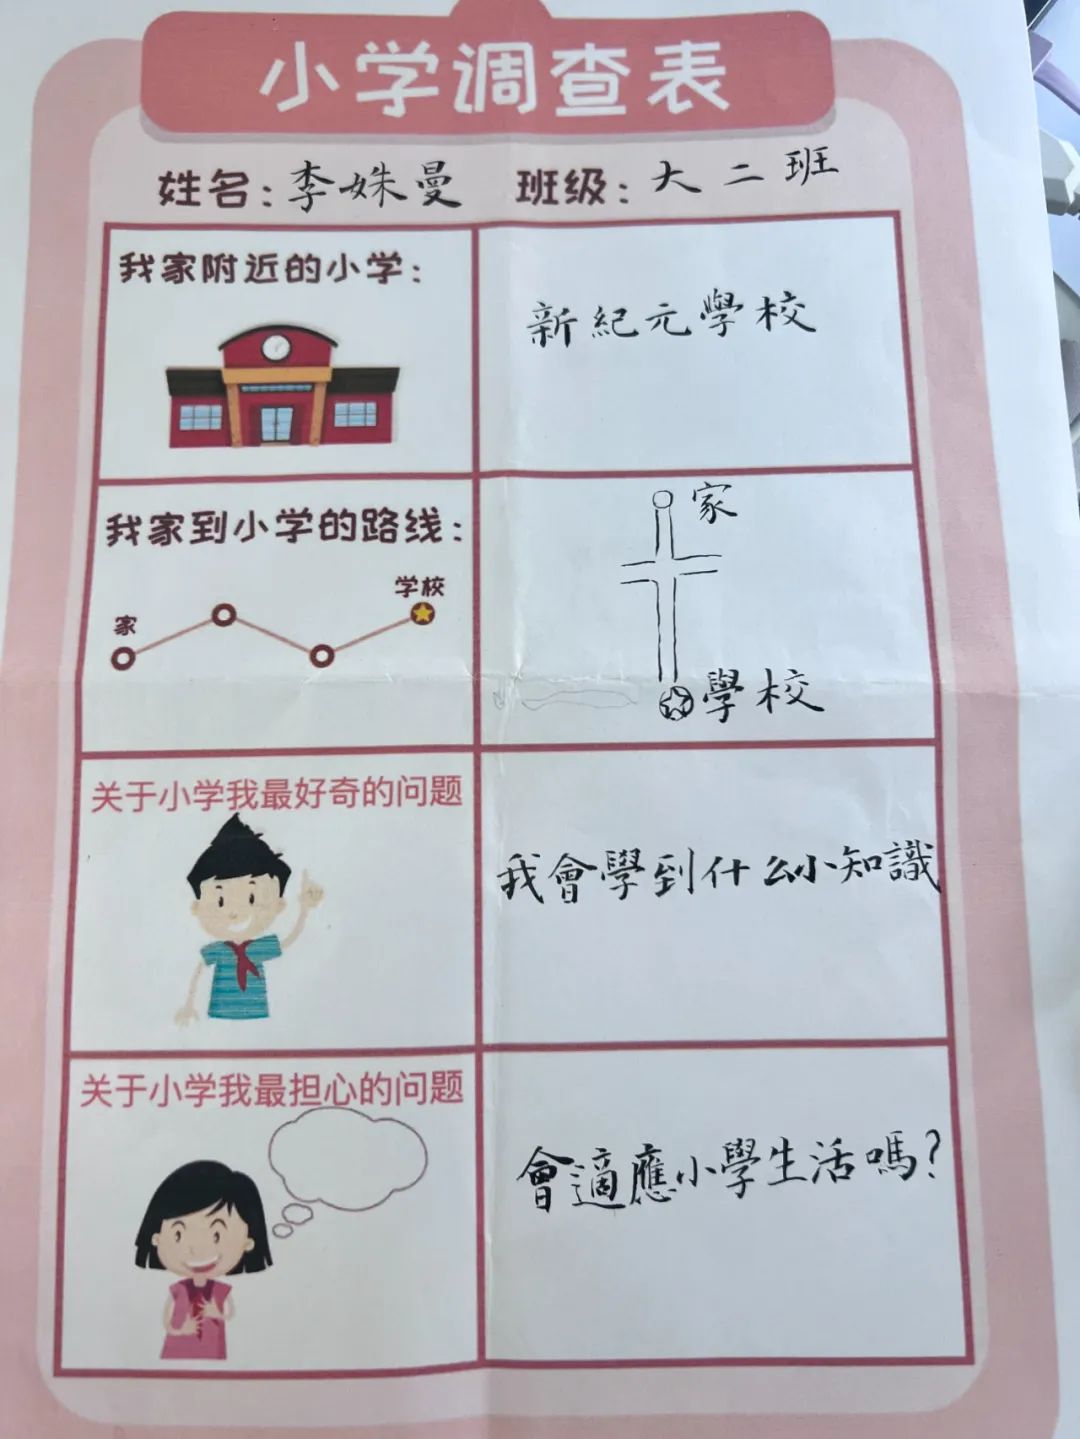 小学调查表
姓名:李姝曼 班级:大二班
我家附近的小学:
新紀元學校
我家到小学的路线:
家
学校
家
學校
关于小学我最好奇的问题
我會學到什么小知識
关于小学我最担心的问题
會適應小學生活嗎?